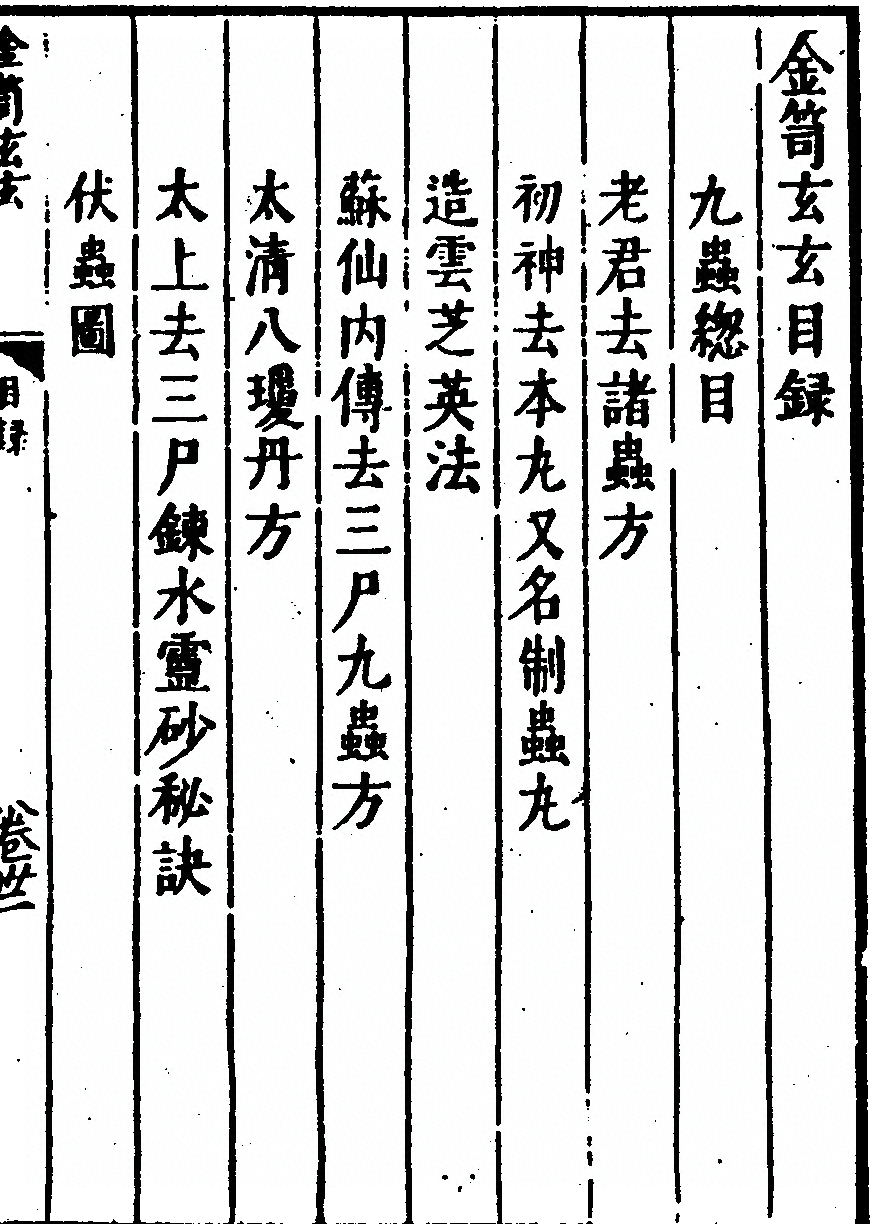 金笥玄玄目録
九蟲緫目
老君去諸蟲方
初神去本丸又名制蟲丸
造雲芝英法
蘇仙内傳去三尸九蟲方
太清八瓊丹方
太上去三尸鍊水靈砂秘訣
伏蟲圖
金笥玄玄
目録
卷廿二